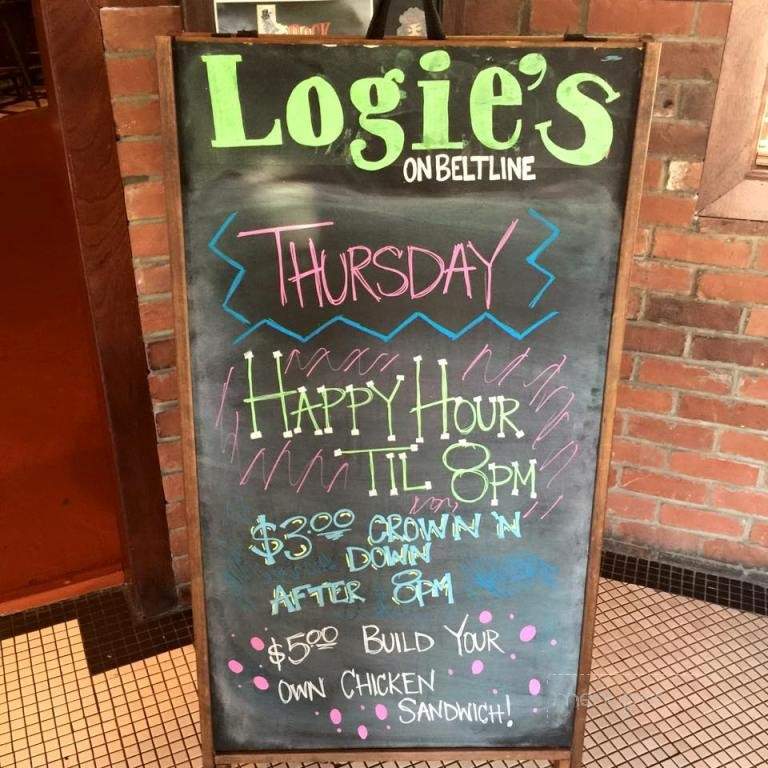 Logie's
ON BELTLINE
THURSDAY
HAPPY HOUR
TIL 8PM
$3.00 CROWN 'N
DOWN
AFTER 8PM
$5.00 BUILD YOUR
OWN CHICKEN
SANDWICH!